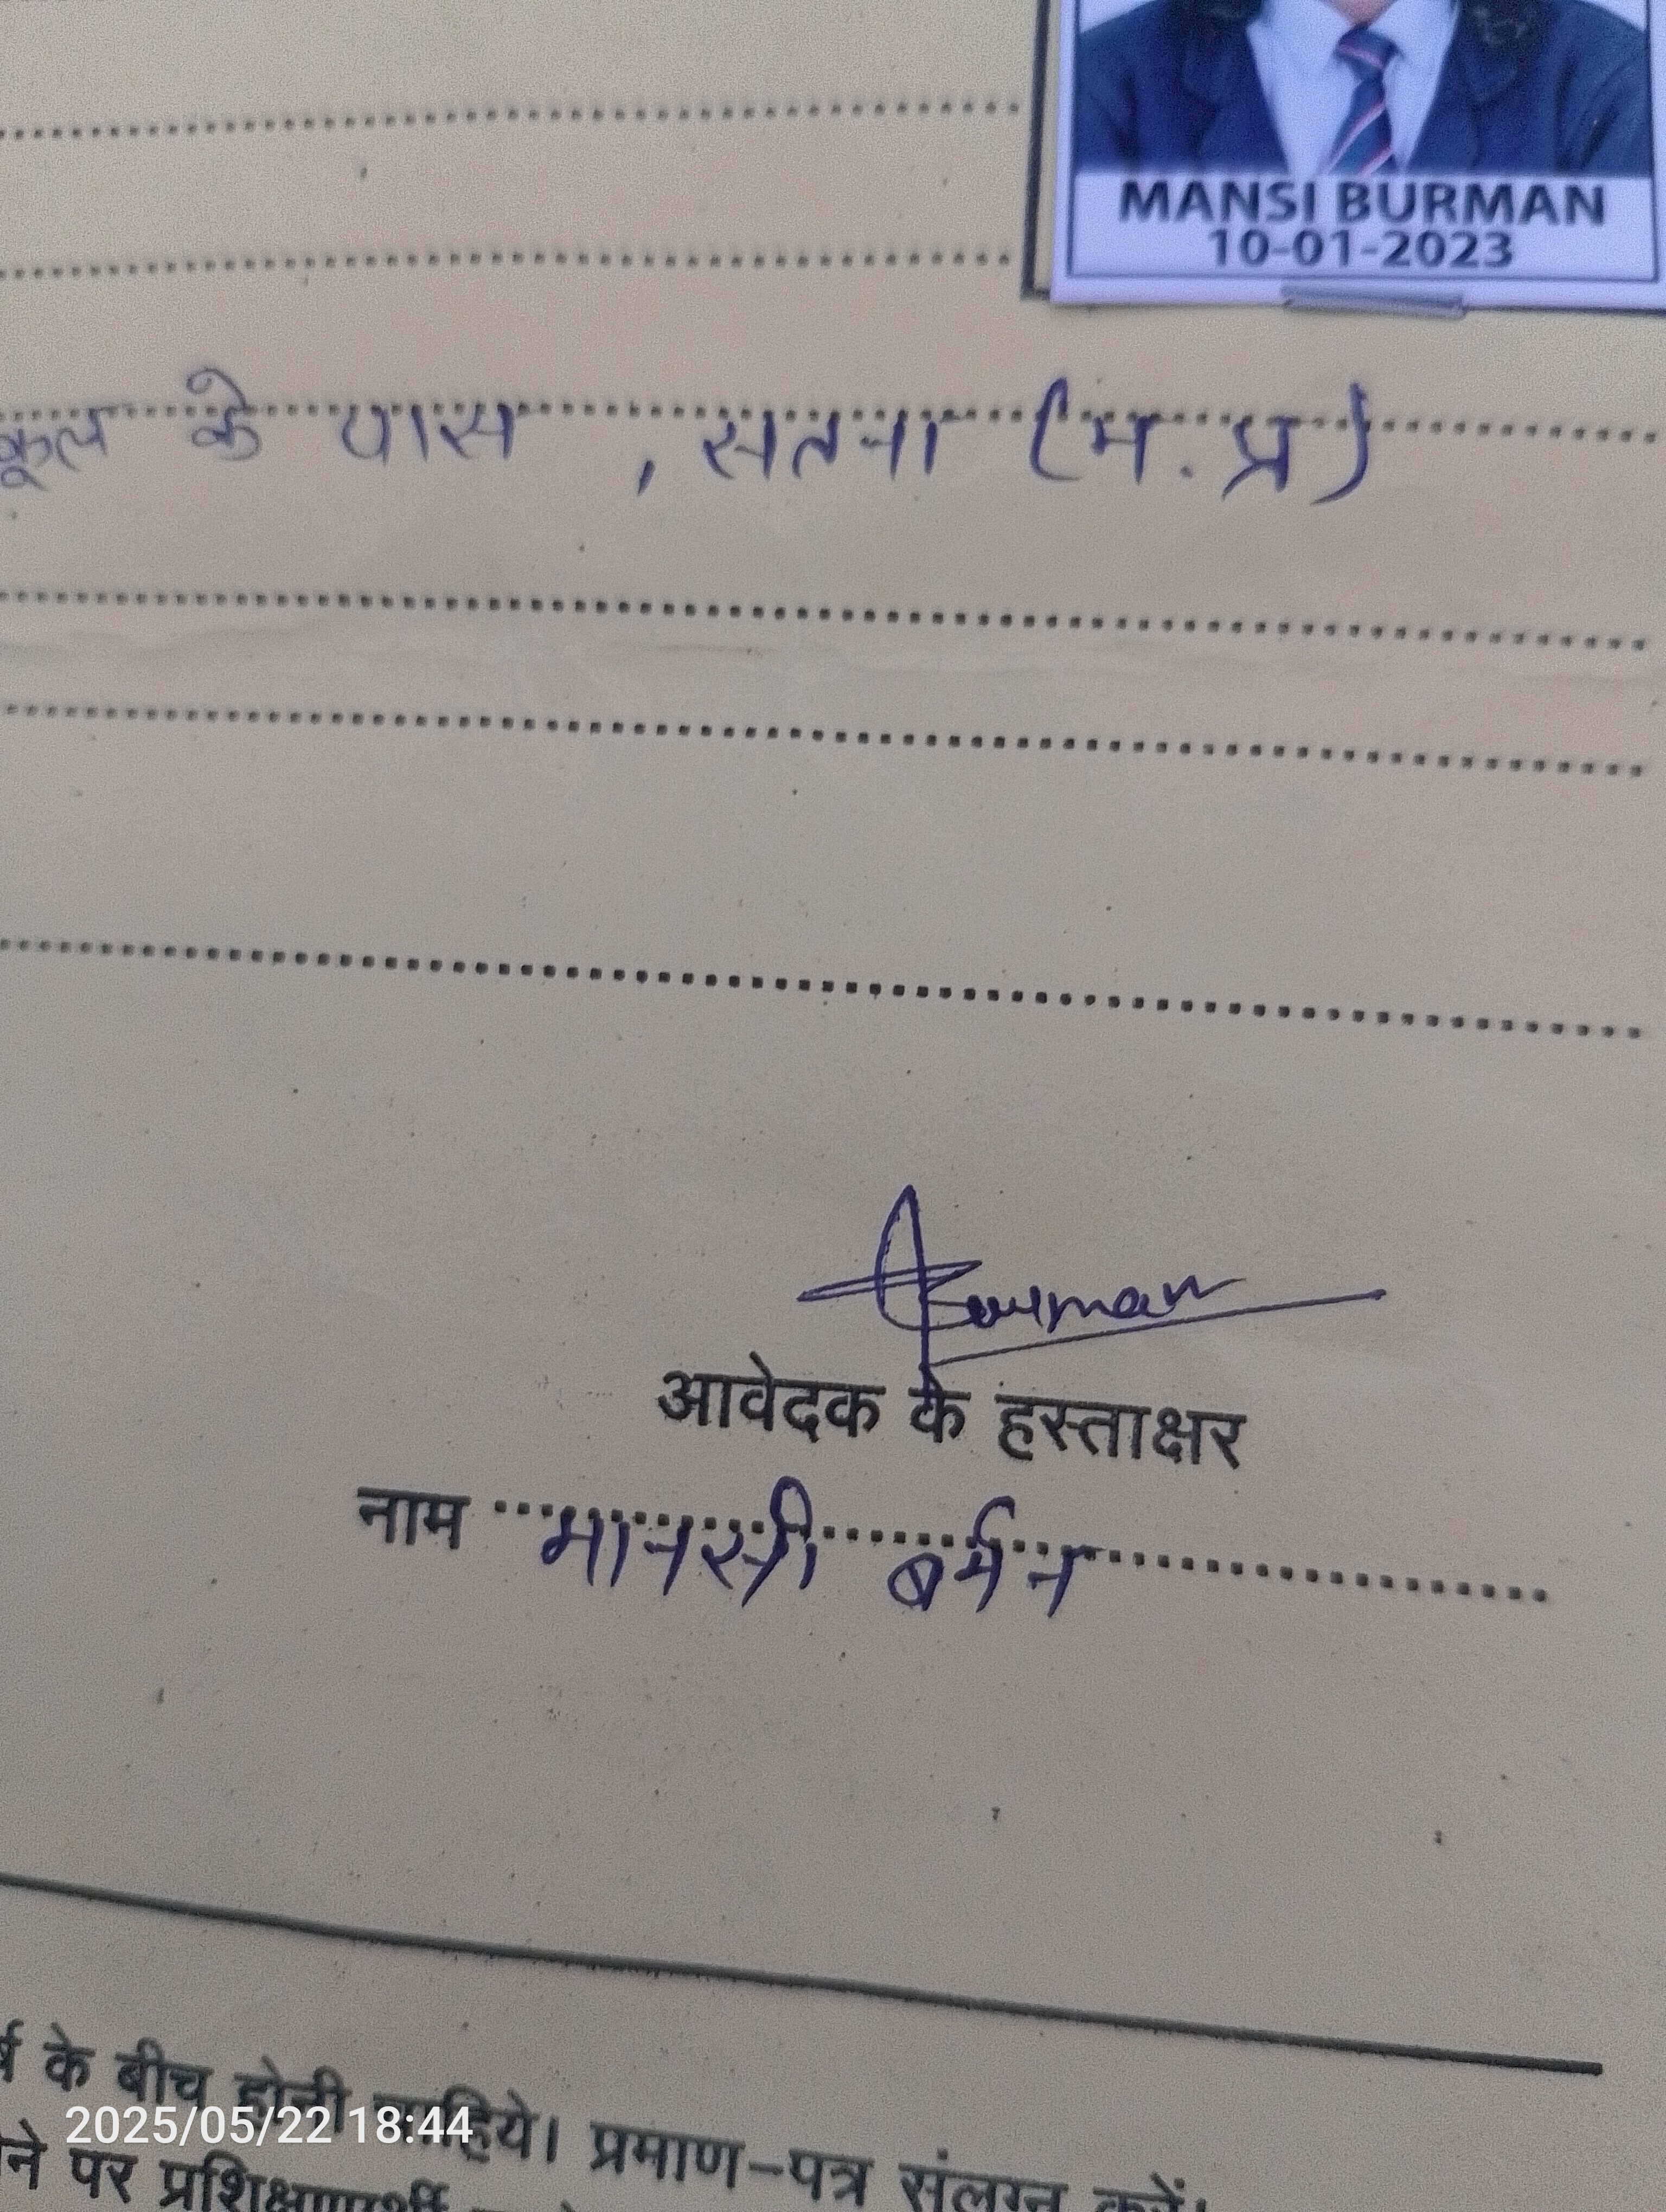 MANSI BURMAN
10-01-2023
कूल के पास , सतना (म. प्र)
Burman
आवेदक के हस्ताक्षर
नाम मानसी बर्मन
र्ष के बीच होनी चाहिये। प्रमाण-पत्र संलग्न करें।
2025/05/22 18:44
ने पर प्रशिक्षणार्थी